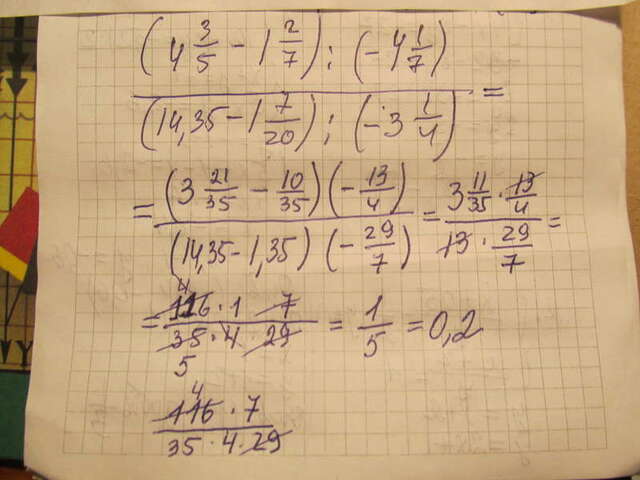 (4 3/5 − 1 2/7) : (−4 1/7)
(14,35 − 1 7/20) : (−3 1/4) =
= (3 21/35 − 10/35)(−13/4) / (14,35 − 1,35)(−29/7) = 3 11/35 · 13/4 / 13 · 29/7 =
= 4 116 · 1 7 / 35 · 4 · 29 = 1/5 = 0,2
5
4
116 · 7
35 · 4 · 29